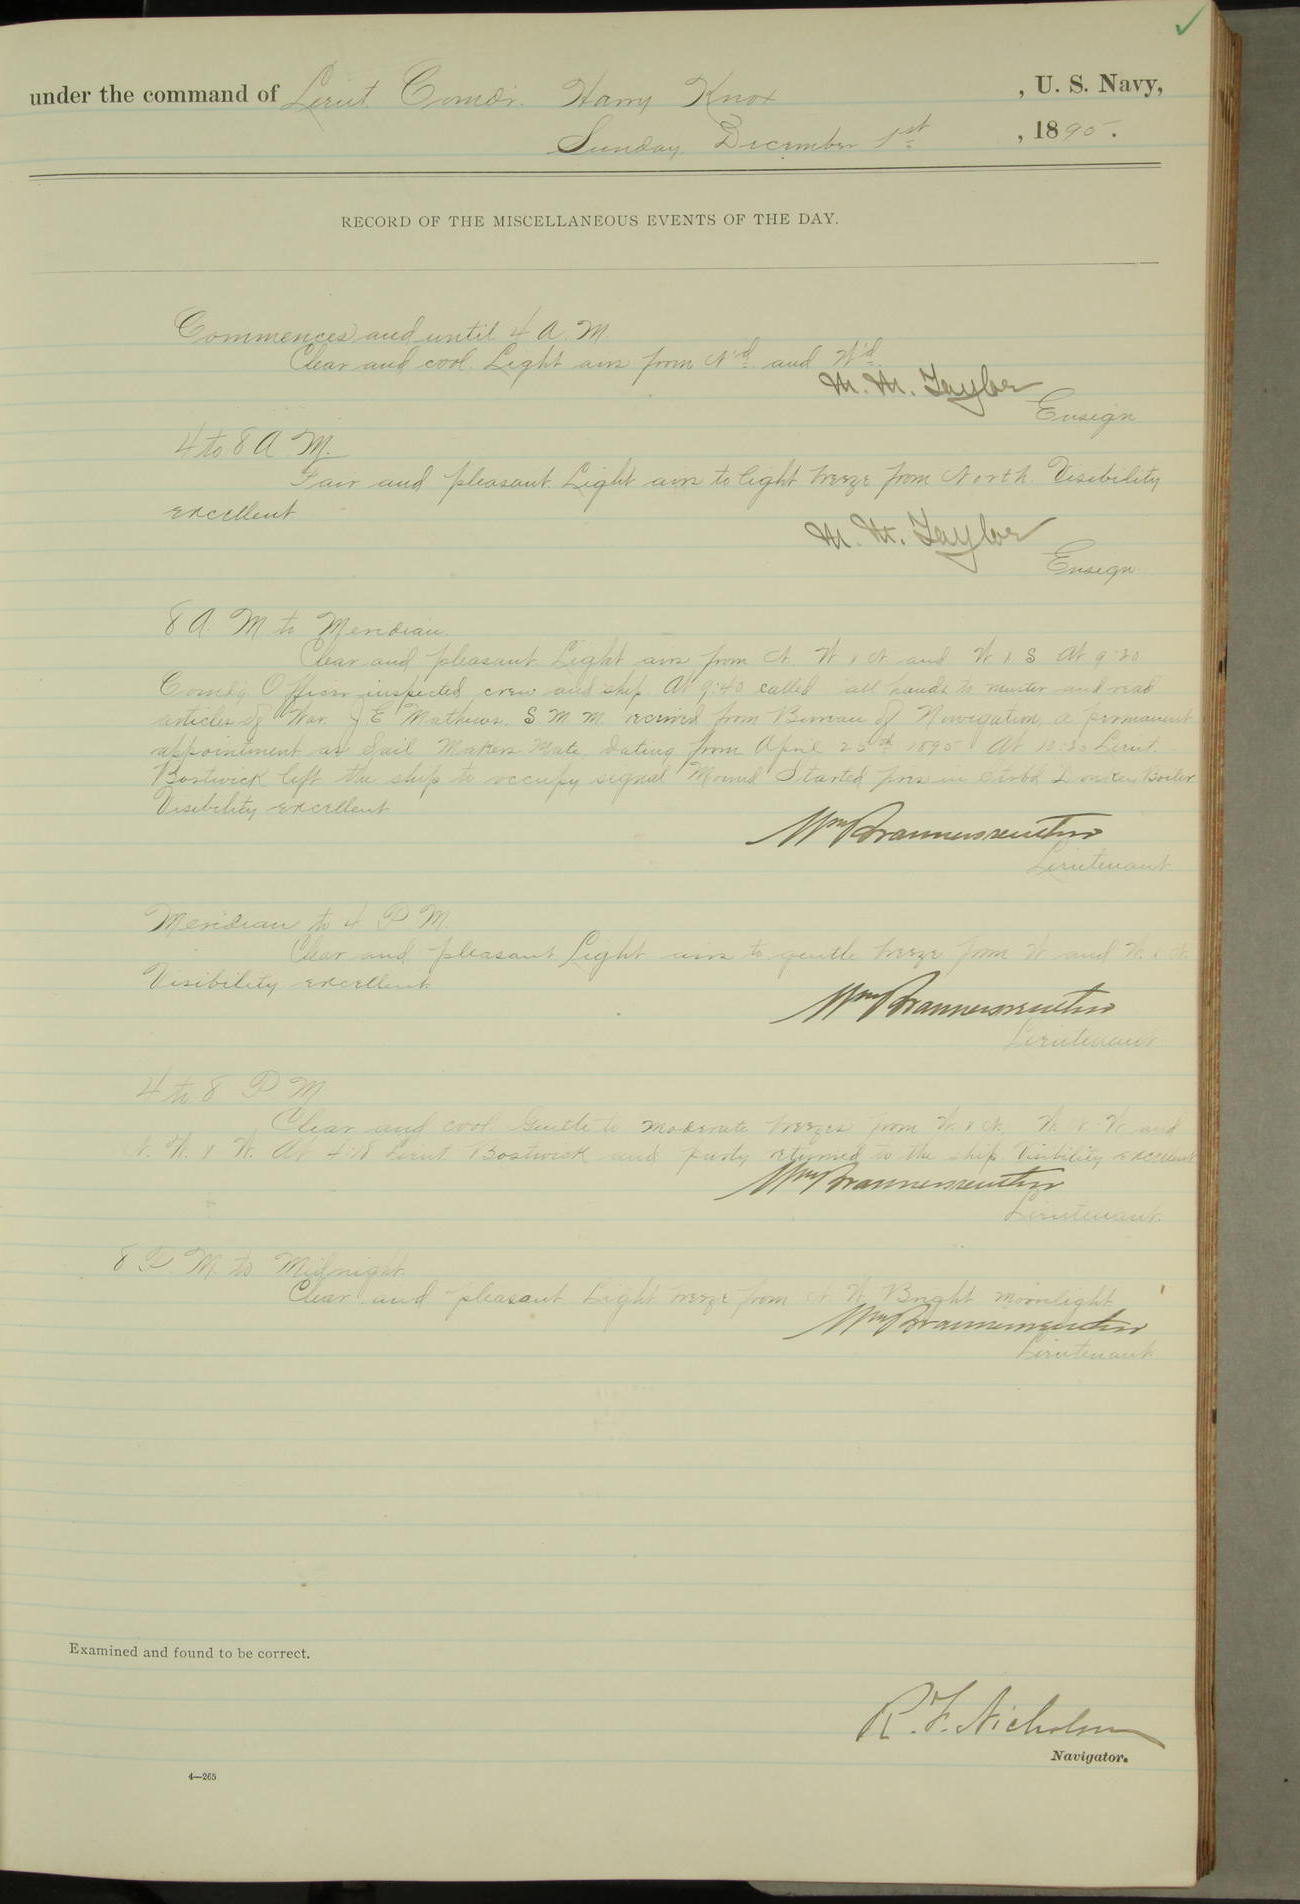 under the command of Lieut. Comdr. Harry Knox , U. S. Navy,
Sunday December 1st , 1895.
RECORD OF THE MISCELLANEOUS EVENTS OF THE DAY.
Commences and until 4 A. M.
Clear and cool. Light airs from N'd and W'd.
M. M. Taylor
Ensign
4 to 8 A M.
Fair and pleasant. Light airs to light breeze from North. Visibility
excellent
M. M. Taylor
Ensign
8 A. M to Meridian.
Clear and pleasant. Light airs from N. W x N and W x S At 9:30
Comdg Officer inspected crew and ship. At 9:40 called all hands to muster and read
articles of War. J E Mathews. S M M. received from Bureau of Navigation, a permanent
appointment as Sail Makers Mate, dating from April 25th 1895 At 10:30 Lieut.
Bostwick left the ship to occupy signal Mound Started fires in Stbd Donkey Boiler
Visibility excellent
Wm Braunersreuther
Lieutenant
Meridian to 4 P M.
Clear and pleasant Light airs to gentle breeze from W and W. x N.
Visibility excellent.
Wm Braunersreuther
Lieutenant
4 to 8 P M
Clear and cool. Gentle to moderate breezes from W. x N. W. N. W and
N. W. x W. At 4:18 Lieut Bostwick and party returned to the ship. Visibility excellent
Wm Braunersreuther
Lieutenant.
8 P. M. to Midnight.
Clear and pleasant Light breeze from N. W. Bright moonlight
Wm Braunersreuther
Lieutenant
Examined and found to be correct.
R. F. Nicholson
Navigator.
4—265